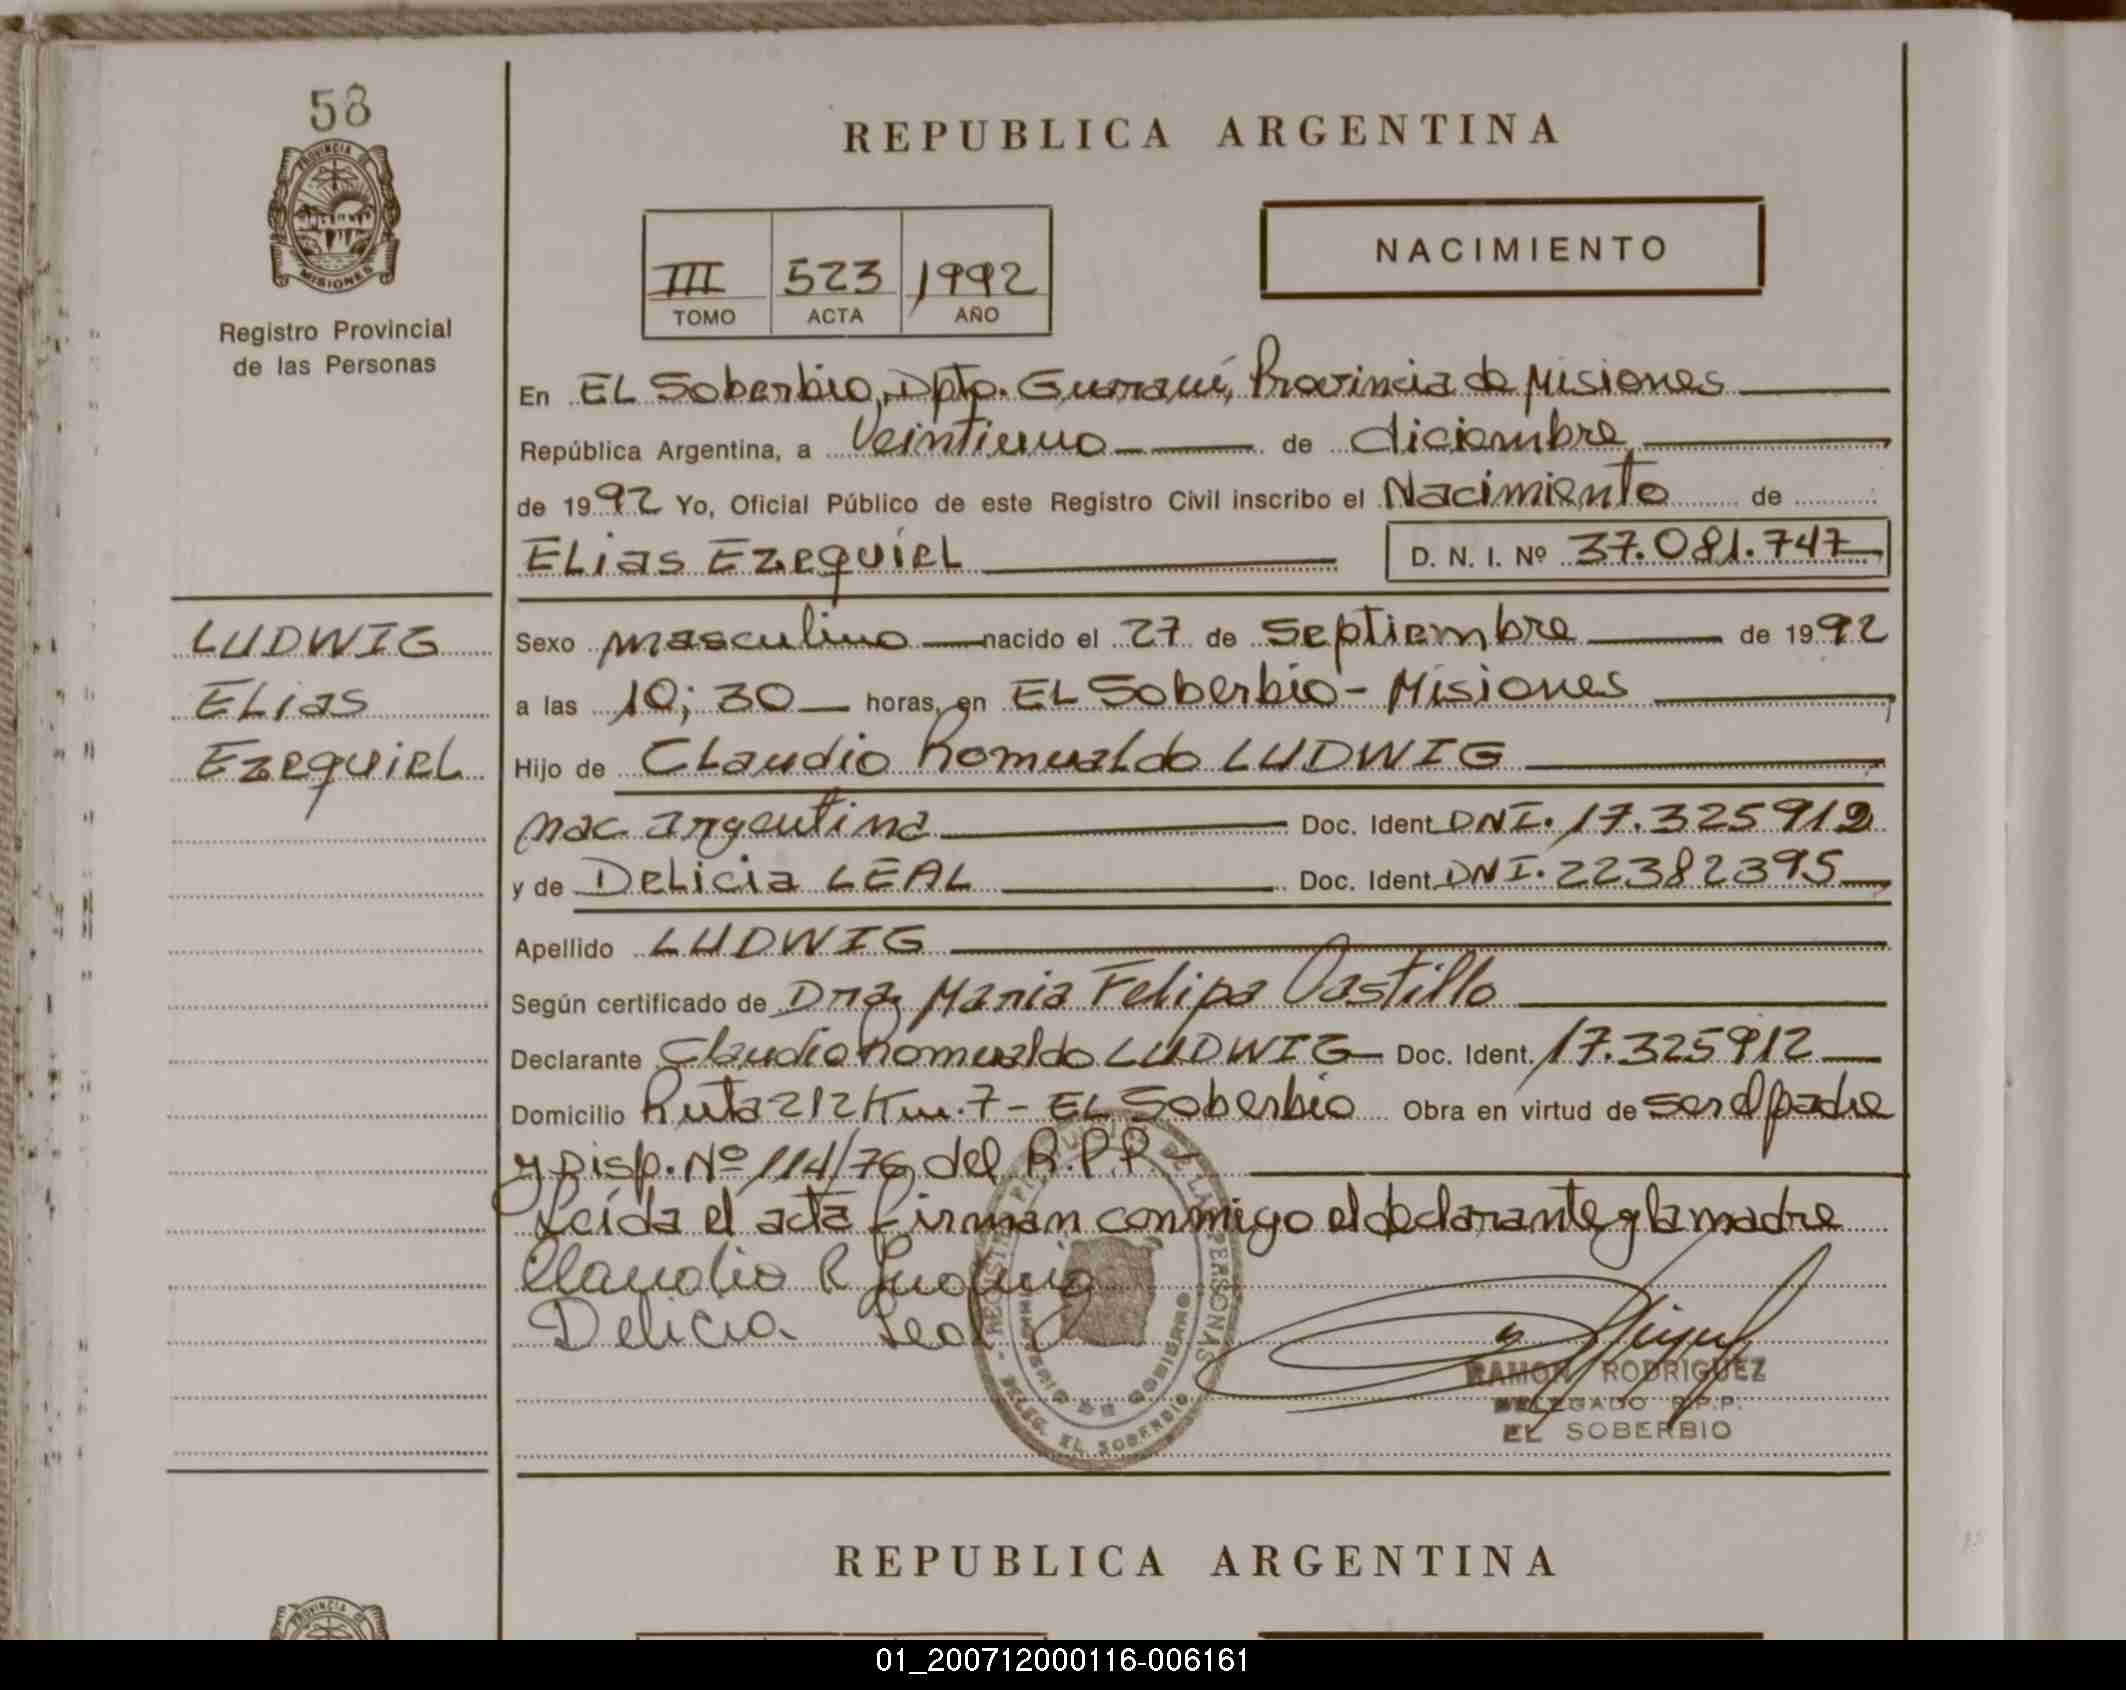 58
PROVINCIA DE
MISIONES
Registro Provincial
de las Personas
REPUBLICA ARGENTINA
III 523 1992
TOMO ACTA AÑO
NACIMIENTO
En EL Soberbio, Dpto. Guaraní, Provincia de Misiones
República Argentina, a Veintiuno de diciembre
de 1992 Yo, Oficial Público de este Registro Civil inscribo el Nacimiento de
ELias EzequieL D. N. I. Nº 37.081.747
LUDWIG
ELias
EzequieL
Sexo masculino nacido el 27 de Septiembre de 1992
a las 10; 30 horas, en EL Soberbio - Misiones
Hijo de CLaudio RomuaLdo LUDWIG
nac argentina Doc. Ident. DNI. 17.325912
y de DeLicia LEAL Doc. Ident. DNI. 22382395
Apellido LUDWIG
Según certificado de Dra. Maria Felipa Castillo
Declarante Claudio Romualdo LUDWIG Doc. Ident. 17.325912
Domicilio Ruta 212 Km. 7 - EL Soberbio Obra en virtud de ser el padre
y Disp. Nº 114/76 del R.P.P. -
Leída el acta firman conmigo el declarante y la madre
Claudio R Ludwig
Delicia Leal
DE LAS PERSONAS
MINISTERIO DE GOBIERNO
DELEG. EL SOBERBIO
RAMON RODRIGUEZ
DELEGADO R.P.P.
EL SOBERBIO
REPUBLICA ARGENTINA
PROVINCIA DE
01_200712000116-006161